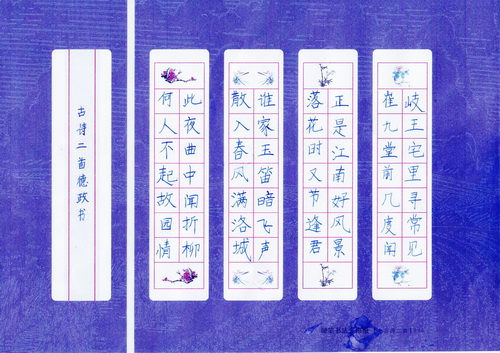 岐王宅里寻常见
崔九堂前几度闻
正是江南好风景
落花时又节逢君
谁家玉笛暗飞声
散入春风满洛城
此夜曲中闻折柳
何人不起故园情
古诗二首德政书